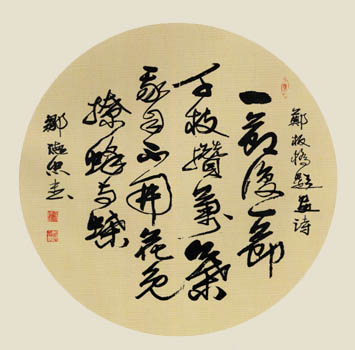 鄭板橋題畫詩
一節復一節
千枝攢萬葉
我自不開花免
撩蜂与蝶
鄒德忠書